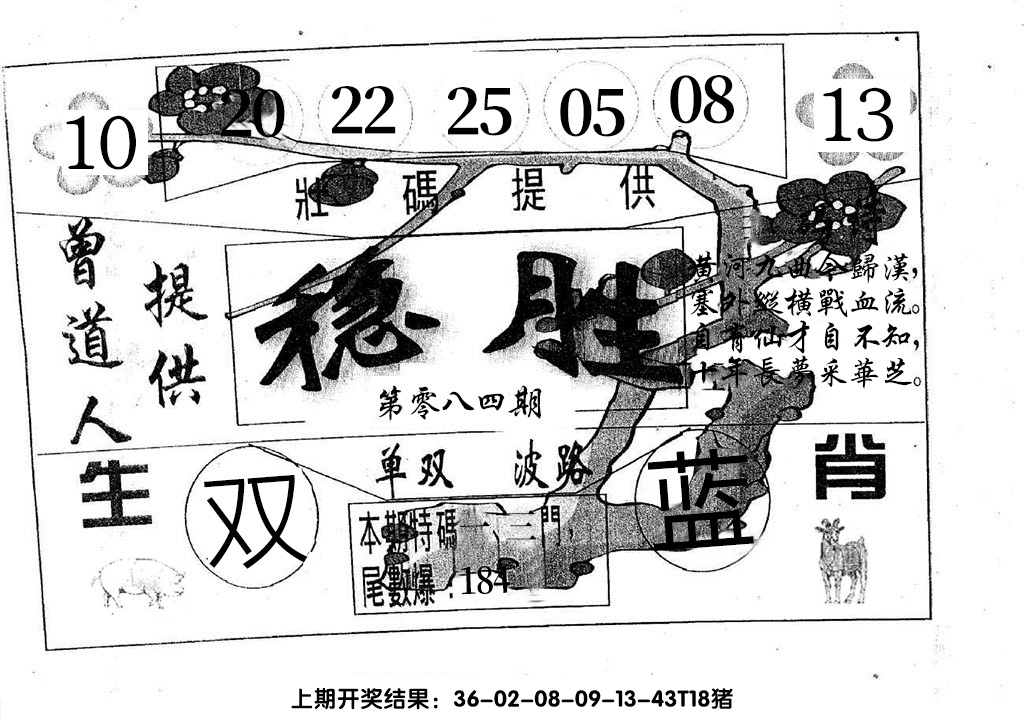 10 20 22 25 05 08 13
壯碼提供
曾道人
提供
穩胜
第零八四期
特
黄河九曲今歸漢，
塞外縱橫戰血流。
自有仙才自不知，
十年長夢采華芝。
单双 波路
生肖
双
蓝
本期特碼一、三門，
尾數爆：184
上期开奖结果：36-02-08-09-13-43T18猪